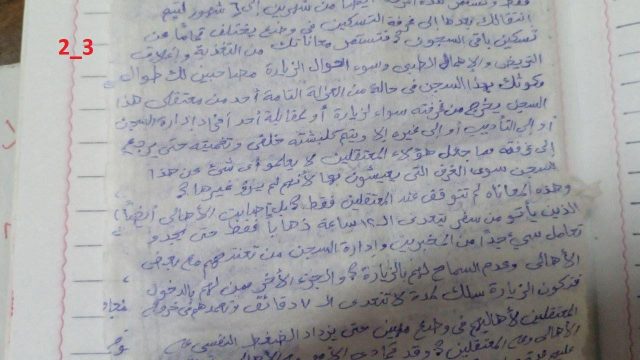 2_3
فقط وتستمر هذه الفترة أيضا من شهرين إلى ٦ شهور ليتم
انتقالك بعدها إلى غرفة التسكين في وضع يختلف تماما عن
تسكين باقي السجون، فتستمر معاناتك من التغذية و
التريض والإهمال الطبي وسوء أحوال الزيارة مصاحبين لك طوال
مكوثك بهذا السجن في حالة من العزلة التامة أحد من معتقلي هذا
السجن يخرج من غرفته سواء لزيارة أو لمقابلة أحد أفراد إدارة السجن
أو إلى التأديب أو إلى غيره إلا ويتم كلبشته خلفي وتغميته حتى يرجع
إلى غرفته مما جعل هؤلاء المعتقلين لا يعلموا أي شئ عن هذا
السجن سوى الغرف التي يعيشون بها لأنهم لم يروا غيرها
وهذه المعاناة لم تتوقف عند المعتقلين فقط، بل أصابت الأهالي أيضاً
الذين يأتوا من سفر يتعدى الـ ١٢ ساعة ذهابا فقط حتى يجدوا
تعامل سيئ جداً من المخبرين وإدارة السجن من تعنتهم مع بعض
الأهالي وعدم السماح لهم بالزيارة، والجزء الآخر ممن لهم بالدخول
فتكون الزيارة سلك لمدة لا تتعدى الـ ٧ دقائق
المعتقلين لأهاليهم في وضع مهين حتى يزداد الضغط النفسي على
الأهالي ومع المعتقلين، وقد